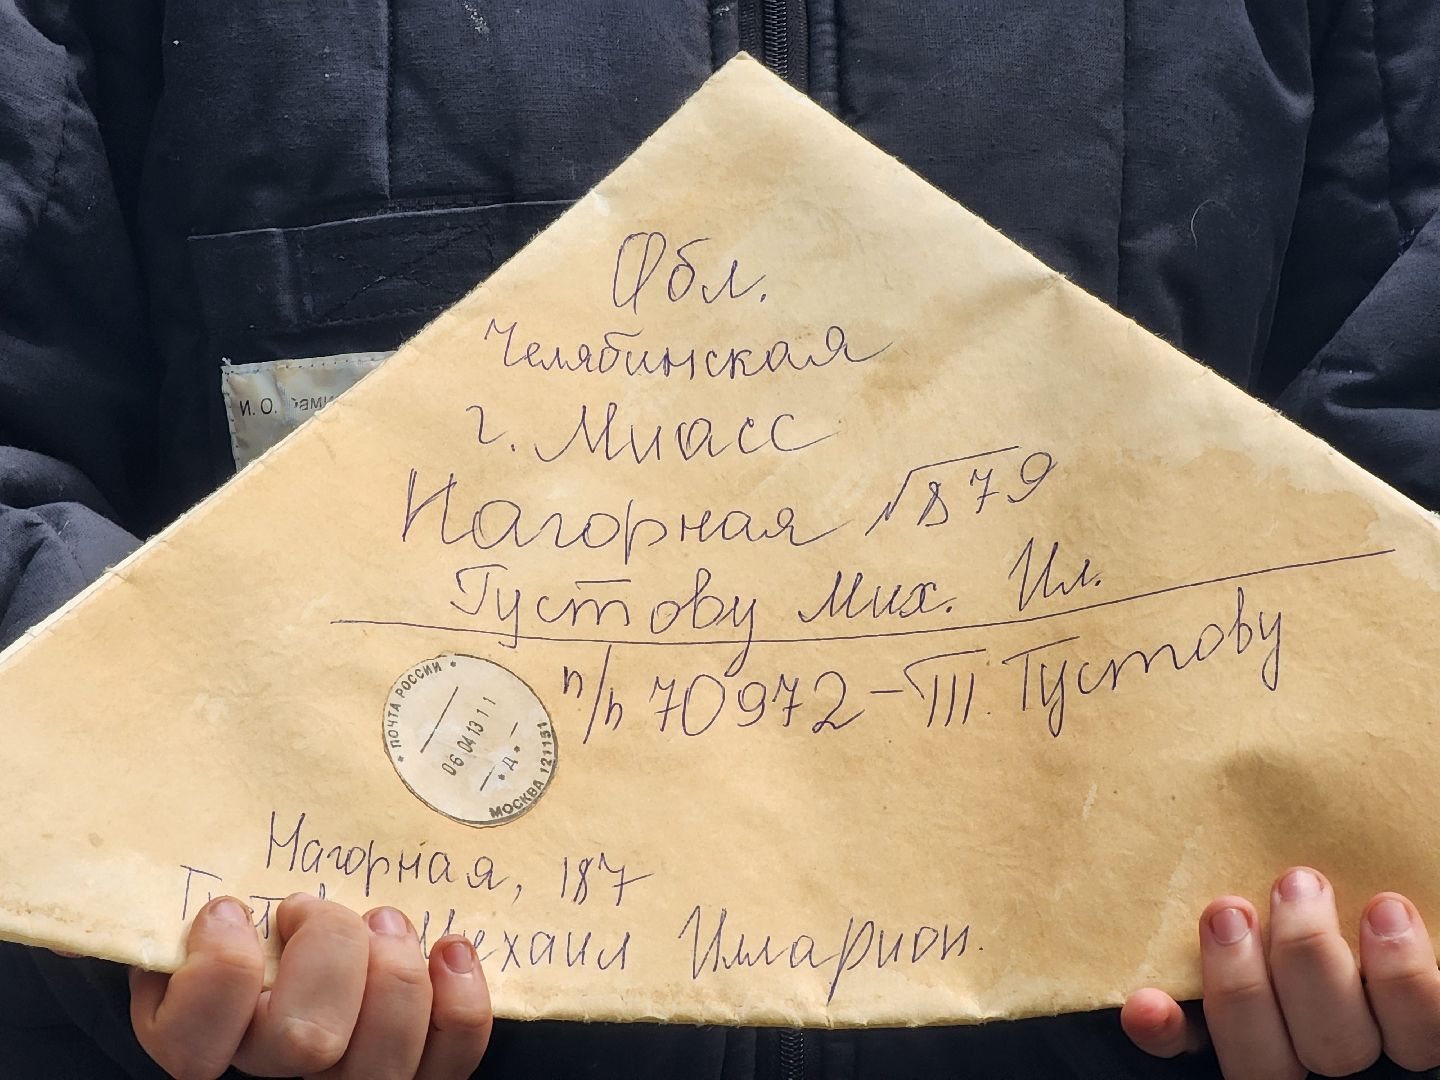 И. О.
Обл.
Челябинская
г. Миасс
Нагорная 1879
Густову Мих. Ил.
п/п 70972-III. Густову
ПОЧТА РОССИИ
06 04 13 11
Д
МОСКВА 121151
Нагорная, 187
Михаил Илларион.